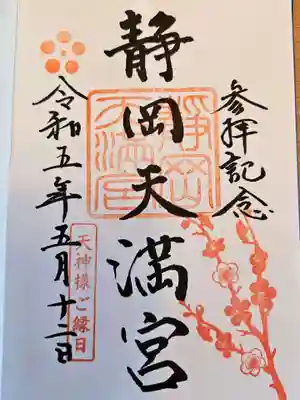 参拝記念
静岡天満宮
静岡天満宮
令和五年五月十二日
天神様ご縁日